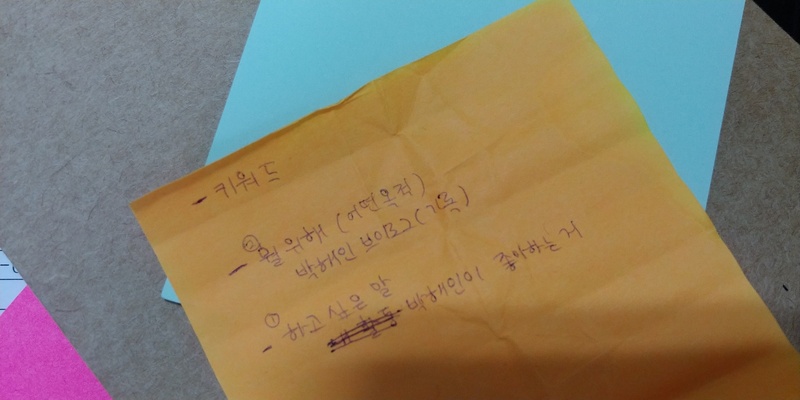 - 키워드
② - 뭘 위해 (어떤목적)
박해인 브이로그(기록)
① - 하고 싶은 말
박해인이 좋아하는 거